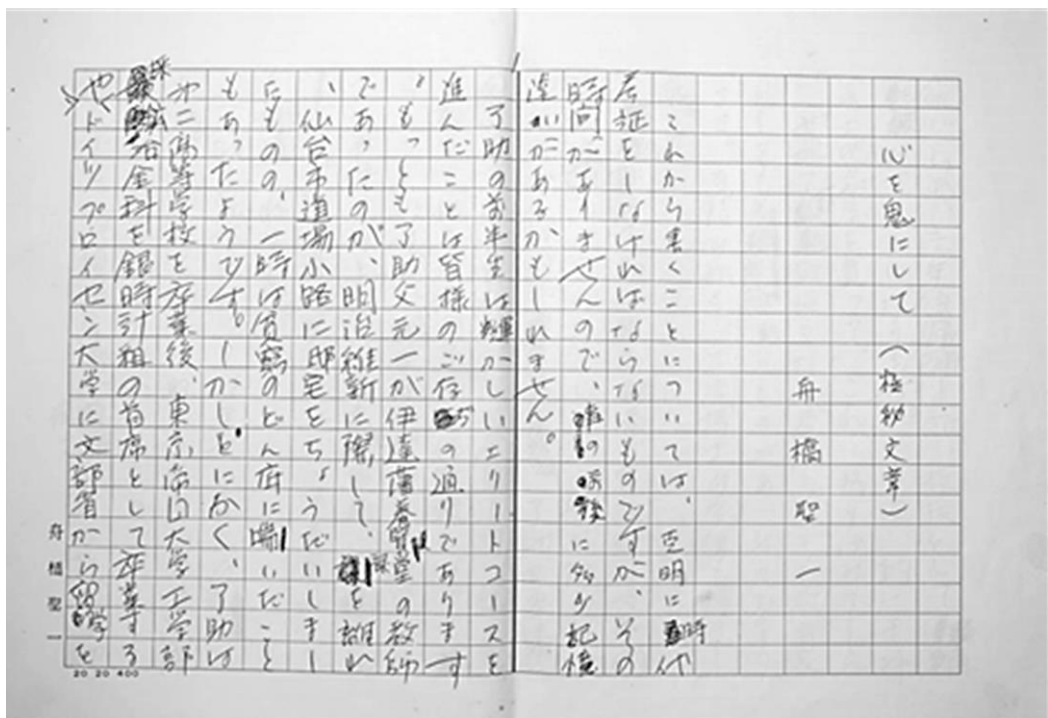 心を鬼にして（極秘文章）
舟橋聖一
これから書くことについては、証明に時代
考証をしなければならないものですが、その
時間がありませんので、に多少記憶
違いがあるかもしれません。
了助の前半生は輝かしいエリートコースを
進んだことは皆様のご存ちの通りであります
。もっとも了助父元一が伊達藩養賢堂の教師
であったのが、明治維新に際して、を離れ
、仙台市道場小路に邸宅をちょうだいしまし
たものの、一時は貧窮のどん底に喘いだこと
もあったようです。しかし、とにかく、了助は
二高等学校を卒業後、東京帝国大学工学部
採冶金科を銀時計組の首席として卒業する
やドイツプロイセン大学に文部省から留学を
舟橋聖一
20 20 400